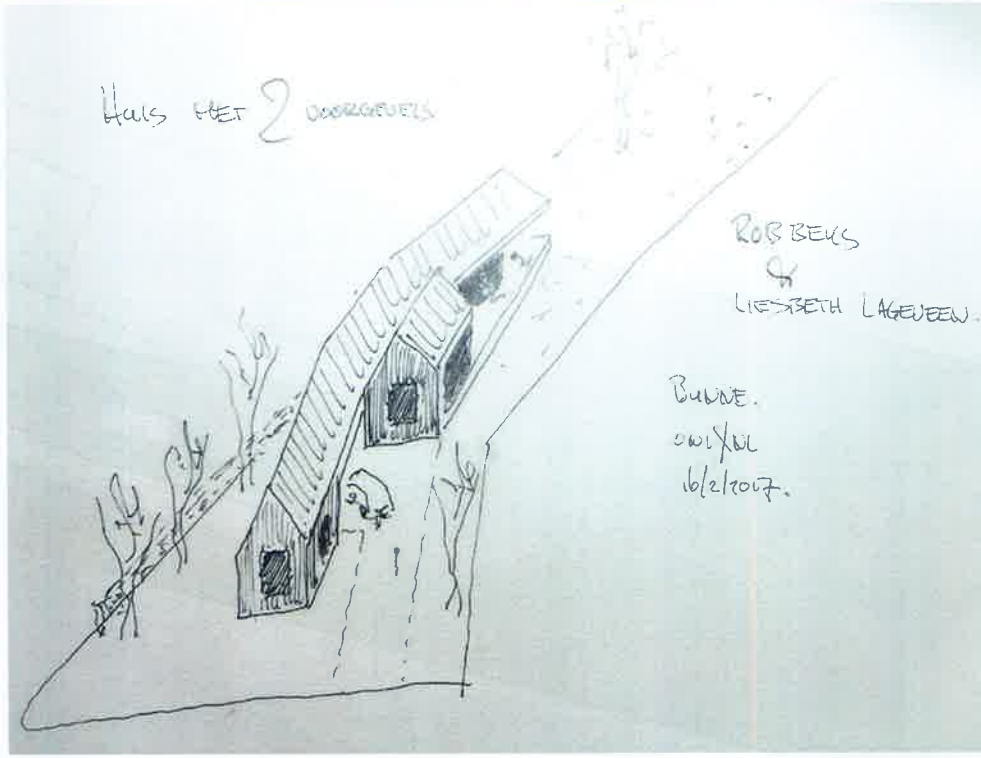 HUIS MET 2 VOORGEVELS
ROB BEKS
&
LIESBETH LAGEVEEN.
BUNNE.
16/2/2017.